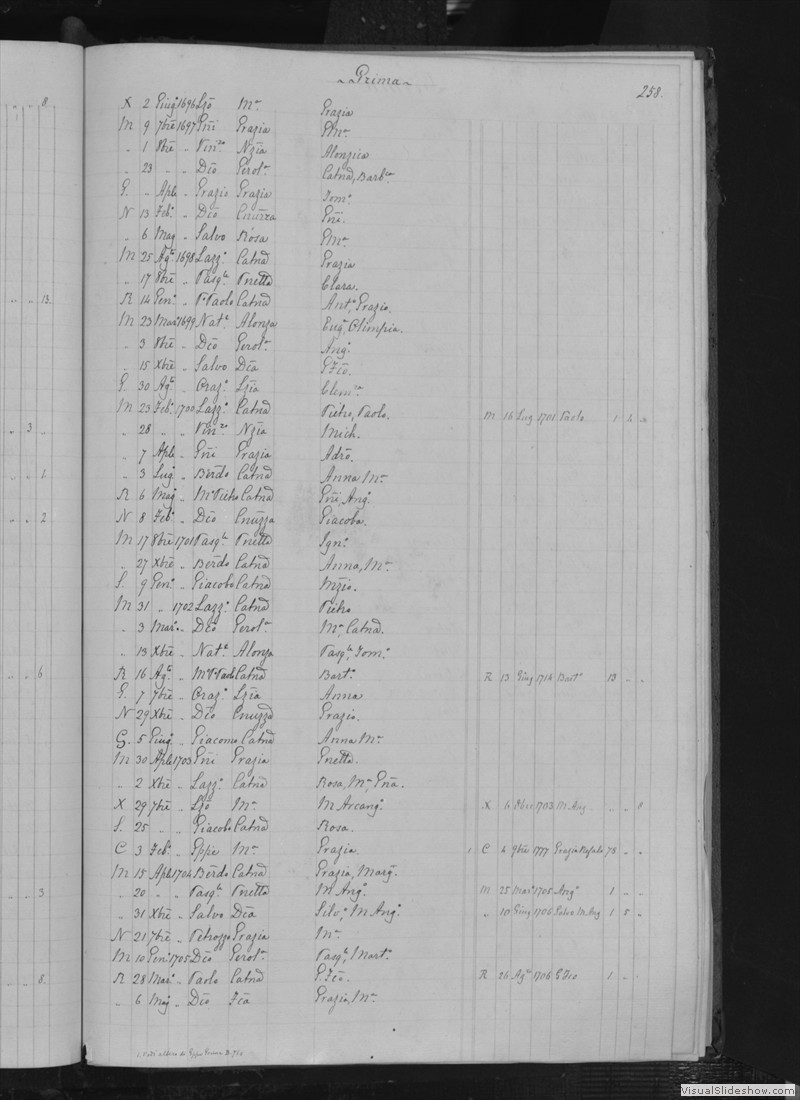 Prima
258.
8
X 2 Giug.º 1696 Lzõ M.ª Grazia
M 9 7bre 1697 Gñi Grazia
„ 1 8bre „ Vin.zo Nzia Alonzia
„ 23 „ „ Dco Gerol.ª Catnã, Barb.ra
G. „ Aple „ Grazio Grazia Tom.º
N 13 Feb.º „ Dco Cnuzza Gñi.
„ 6 Mag „ Salvo Rosa
M 25 Ag.º 1698 Lazz.º Catnã Grazia
„ 17 8bre „ Pasq.le Vnetta Clara.
13. R 14 Gen.º „ V. Paolo Catnã Ant.º Grazio.
M 23 Mar.º 1699 Nat.e Alonza Eug.ª Olimpia.
„ 3 8bre „ Dco Gerol.ª Ang.º
„ 15 Xbre „ Salvo Dca G. Fco.
G. 30 Ag.º „ Oraz.º Lzia Clem.za
M 23 Feb.º 1700 Lazz.º Catnã Pietro, Paolo. M 16 Lug 1701 Paolo 1 5 „
3 „ 28 „ „ Vin.zo Nzia Mich.
„ 7 Aple „ Gñi Grazia
1. „ 3 Lug „ Berdo Catnã Anna M.ª
R 6 Mag „ M.º Pietro Catnã Gñi, Ang.º
2 N 8 Feb.º „ Dco Cnuzza Giacoba.
M 17 8bre 1701 Pasq.le Vnetta Ign.º
„ 27 Xbre „ Berdo Catnã Anna, M.ª
S. 9 Gen.º „ Giacobo Catnã
M 31 „ 1702 Lazz.º Catnã Pietro
„ 3 Mar.º „ Dco Gerol.ª M.ª Catnã.
„ 13 Xbre „ Nat.e Alonza Pasq.le Tom.º
6 R 16 Ag.º „ Catnã Bart.º R 13 Giug 1716 Bart.º 13 „ „
G. 7 7bre „ Oraz.º Lzia Anna
N 29 Xbre „ Dco Cnuzza Grazio.
G. 5 Giug. „ Giacomo Catnã Anna M.ª
M 30 Aple 1703 Gñi Grazia Gnetta.
„ 2 Xbre „ Lazz.º Catnã Rosa, M.ª Gña.
X 29 7bre „ Lzõ M.ª M Arcang.ª X 6 8bre 1703 M Ang „ „ 8
S. 25 „ „ Giacobo Catnã Rosa.
C 3 Feb.º „ Gppe M.ª Grazia. 1 C 4 9bre 1777 Grazia 78 „ „
M 15 Aple 1704 Berdo Catnã Grazia, Marg.
3 „ 20 „ „ Pasq.le Vnetta M Ang.ª M 25 Mar.º 1705 Ang.ª 1 „ „
„ 31 Xbre „ Salvo Dca Silv.ª M Ang.ª „ 10 Giug 1706 M Ang 1 5 „
N 21 7bre „ Grazia M.ª
M 10 Gen.º 1705 Dco Gerol.ª Pasq.le Mart.º
8. R 28 Mar.º „ Paolo Catnã G. Fco. R 26 Ag.º 1706 G Fco 1 „ „
„ 6 Mag „ Dco Fca Grazia, M.ª
VisualSlideshow.com